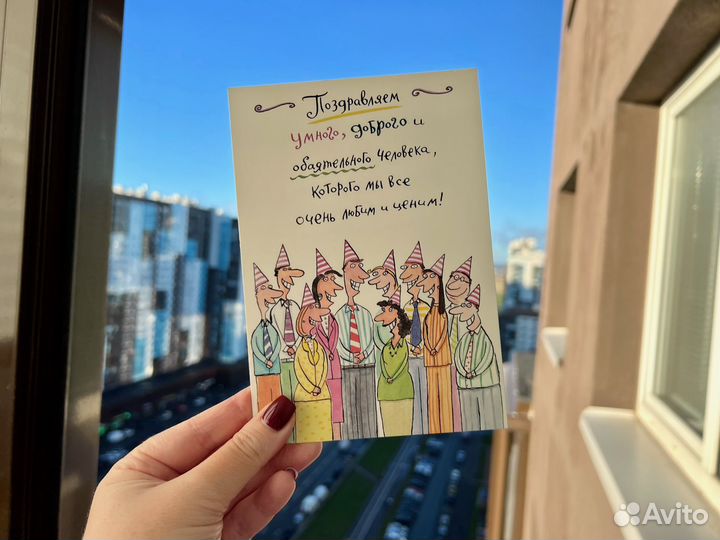 Поздравляем
умного, доброго и
обаятельного человека,
которого мы все
очень любим и ценим!
Avito